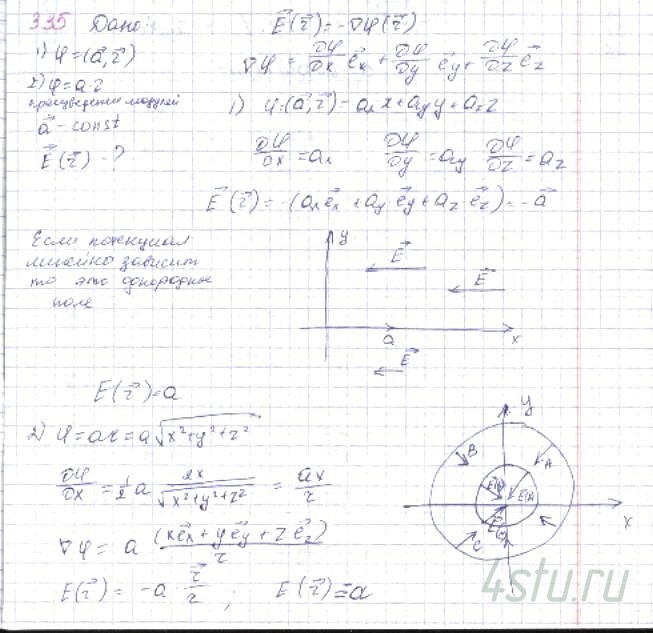 335 Дано:
1) φ=(a⃗,r⃗)
2) φ=a·r
произведение модулей
a⃗ - const
E⃗(r⃗) - ?
E⃗(r⃗)=-∇φ(r⃗)
∇φ = ∂φ/∂x e⃗x + ∂φ/∂y e⃗y + ∂φ/∂z e⃗z
1) φ=(a⃗,r⃗)=axx+ayy+azz
∂φ/∂x=ax ∂φ/∂y=ay ∂φ/∂z=az
E⃗(r⃗)=-(axe⃗x+ay·e⃗y+az·e⃗z)=-a⃗
Если потенциал
линейно зависит
то это однородное
поле
y
E⃗
E⃗
a
x
E⃗
E(r⃗)=a
2) φ=ar=a√x²+y²+z²
∂φ/∂x=1/2 a 2x/√x²+y²+z² = ax/r
∇φ = a (xe⃗x+ye⃗y+ze⃗z)/r
E(r⃗) = -a·r⃗/r ; E(r⃗)=a
y
B
A
E(A)
x
C
4stu.ru